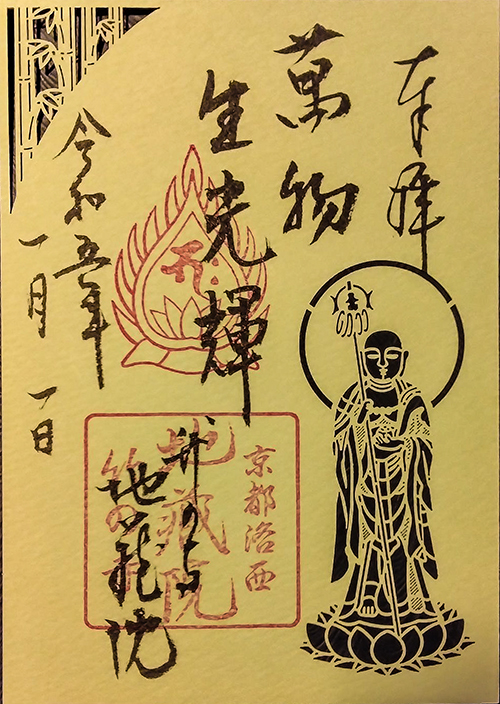 奉拝
萬物
生光輝
竹の寺
地蔵院
令和五年
一月一日
京都洛西
地蔵院
竹の寺